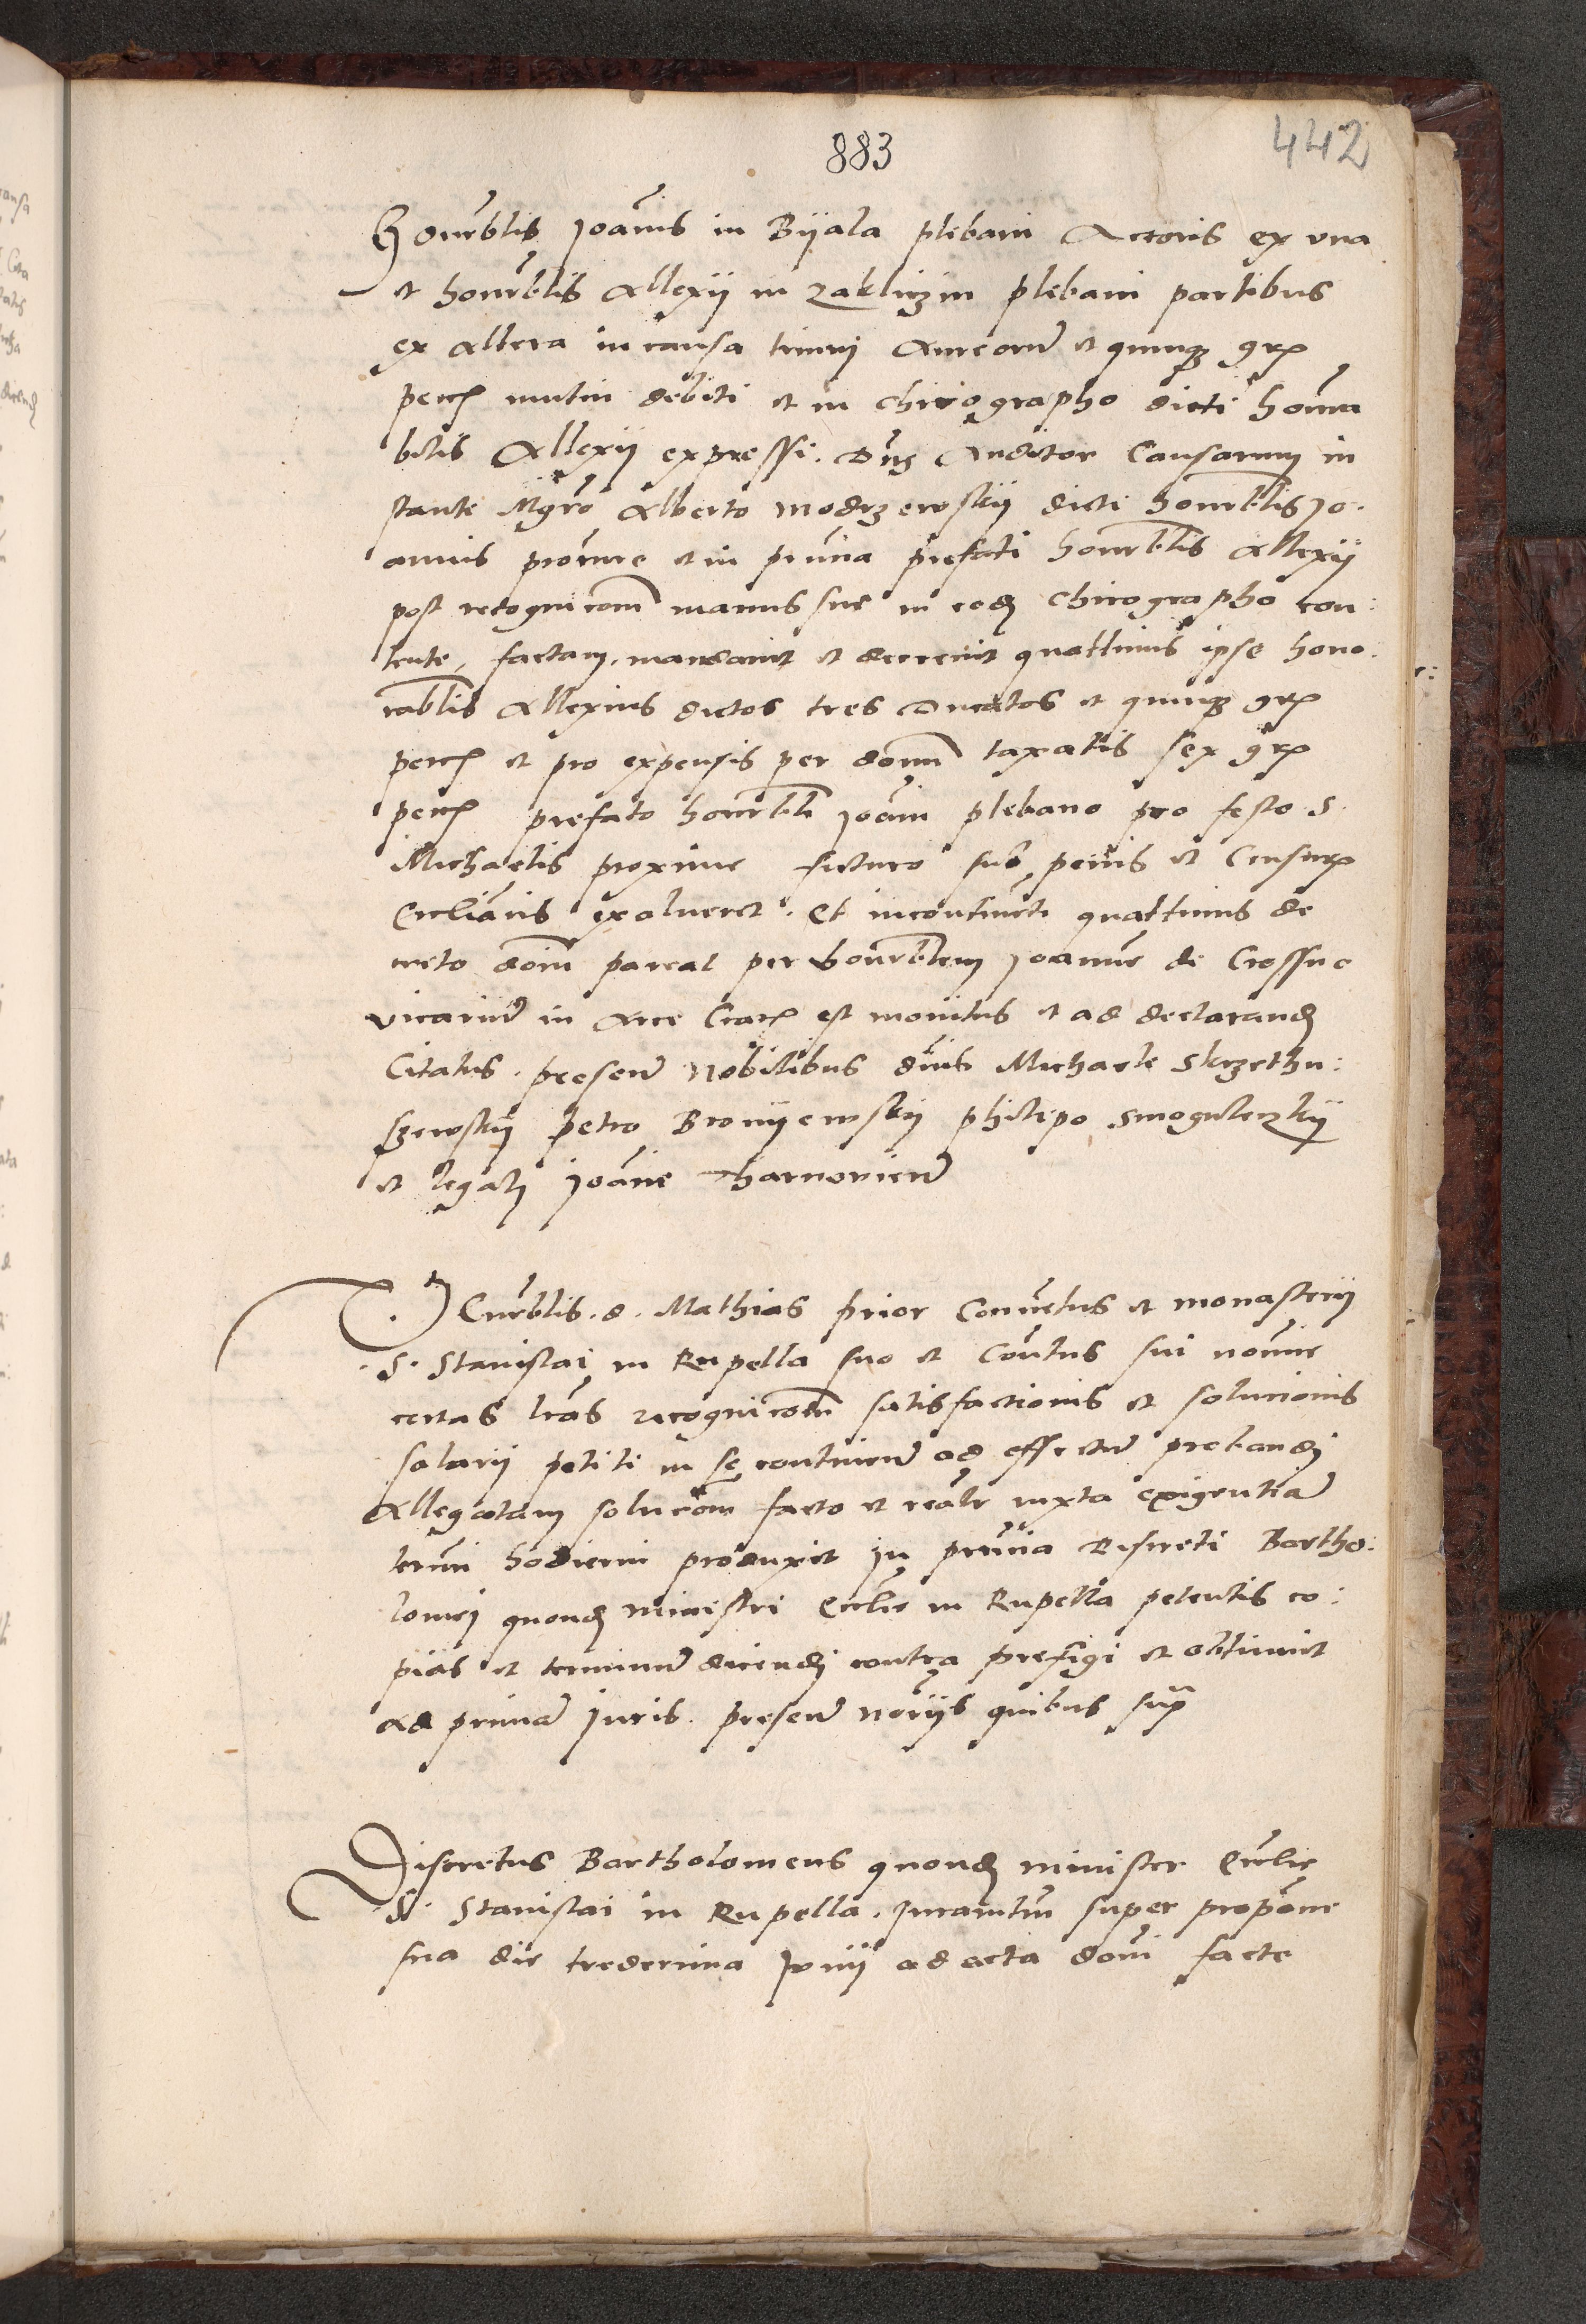 883
442
Honrblis Joanis in Byala plebani Actoris ex una
et honrblis Allexii in zakliczin plebani partibus
ex altera in causa trium Aureorum et quinque gr
pecc mutui debiti et in chirographo dicti honora
bilis Allexii expressi. Dns Auditor Causarum in
stante Mgro Alberto modrzewskij dicti honrblis Jo.
annis procure et in pntia prefati honrblis Allexii
post recognicom manus sue in eodem chirographo con:
tente, factam. mandavit et decrevit quattinus ipse hono.
rablis Allexius dictos tres Ducatos et quinque gr
pecc et pro expensis per domi taxatis sex gr
pecc prefato honrbli Joani plebano pro festo S.
Michaelis proxime futuro sub penis et Censur
Ecclianis exolveret. Et incontinenti quattinus de
creto domi pareat per honrblem Joannem de Crossno
vicarium in Arce Crac est monitus et ad declarand
Citatus. presen nobilibus dnis Michaele Skrzethu:
szewskij petro Bronyewskij philipo Smogulerzkij
et legali Joanne Tharnovien
Venrblis. d. Mathias prior Conventus et monasterii
S. Stanislai in Rupella suo et Contus sui nomine
certas lras recognicom satisfactionis et solucionis
salarii petiti in se continen ad effectum probandi
Allegatam solucom facto et realr iuxta exigentiam
termi hodierni produxit in pntia discreti Bartho:
lomei quondam ministri Ecclie in Rupella petentis co:
pias et terminum dicendi contra prefigi et obtinuit
ad primam Juris. presen noriis quibus supra
Discretus Bartholomeus quondam minister Ecclie
S. Stanislai in Rupella. Juramtum super propone
sua die tredecima Junij ad acta domi facte